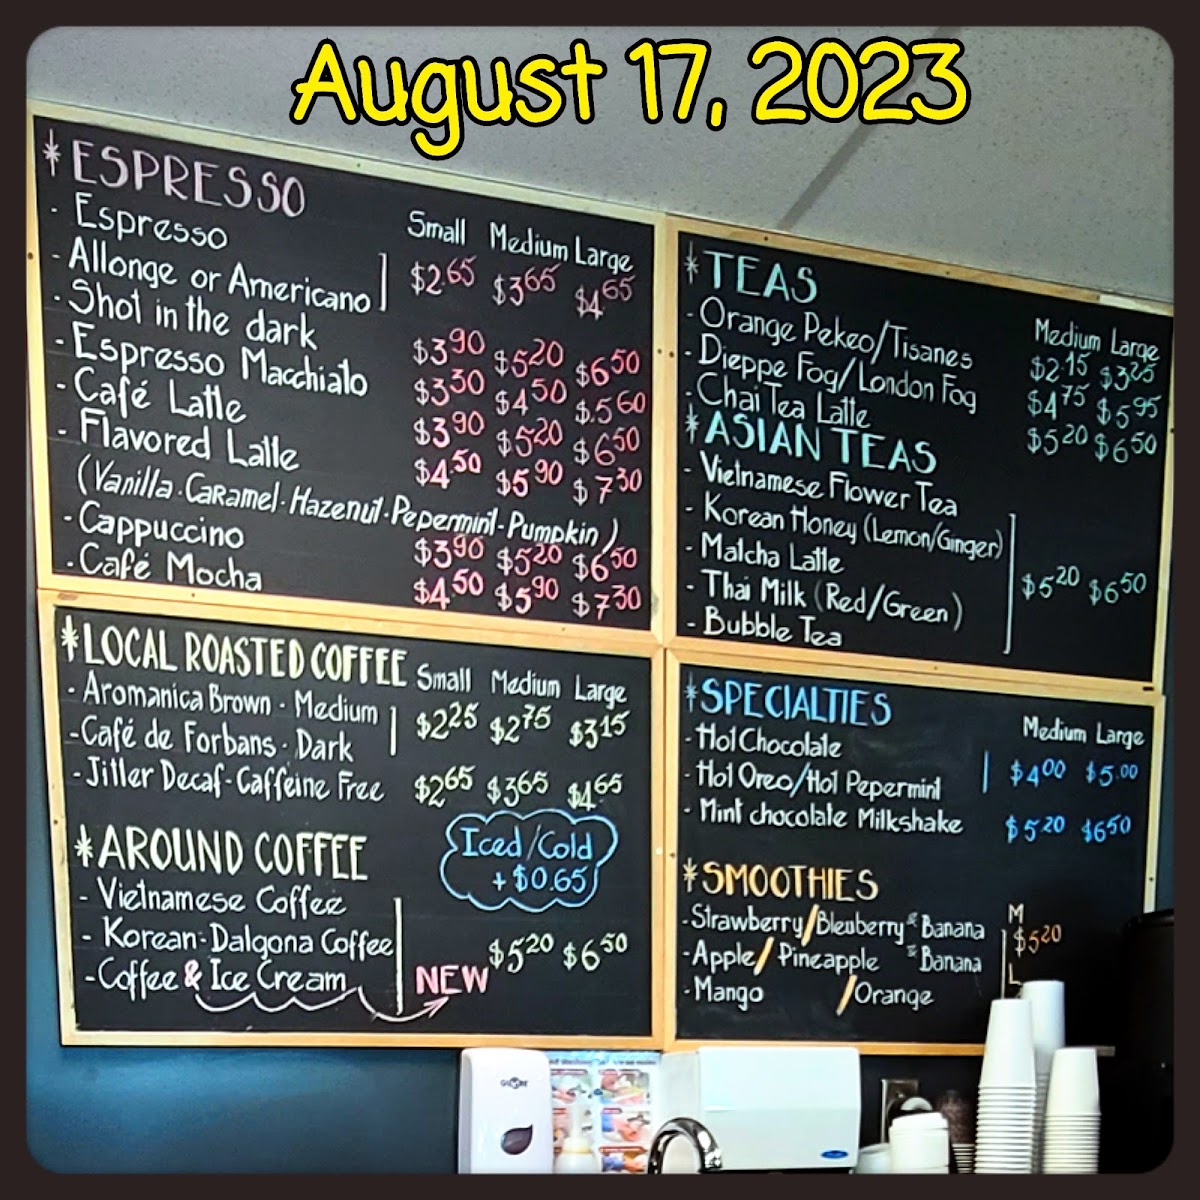 August 17, 2023
* ESPRESSO
Small Medium Large
- Espresso
- Allonge or Americano $2.65 $3.65 $4.65
- Shot in the dark $3.90 $5.20 $6.50
- Espresso Macchiato $3.30 $4.50 $5.60
- Café Latte $3.90 $5.20 $6.50
- Flavored Latte $4.50 $5.90 $7.30
(Vanilla · Caramel · Hazenut · Pepermint · Pumpkin)
- Cappuccino $3.90 $5.20 $6.50
- Café Mocha $4.50 $5.90 $7.30
* LOCAL ROASTED COFFEE
Small Medium Large
- Aromanica Brown - Medium
- Café de Forbans · Dark $2.25 $2.75 $3.15
- Jitter Decaf - Caffeine Free $2.65 $3.65 $4.65
Iced/Cold
+ $0.65
* AROUND COFFEE
- Vietnamese Coffee
- Korean-Dalgona Coffee $5.20 $6.50
- Coffee & Ice Cream NEW
* TEAS
Medium Large
- Orange Pekeo/Tisanes $2.15 $3.25
- Dieppe Fog/London Fog $4.75 $5.95
- Chai Tea Latte $5.20 $6.50
* ASIAN TEAS
- Vietnamese Flower Tea
- Korean Honey (Lemon/Ginger)
- Matcha Latte $5.20 $6.50
- Thai Milk (Red/Green)
- Bubble Tea
* SPECIALTIES
Medium Large
- Hot Chocolate
- Hot Oreo/Hot Pepermint $4.00 $5.00
- Mint chocolate Milkshake $5.20 $6.50
* SMOOTHIES
M
- Strawberry/Bleuberry & Banana $5.20
- Apple/Pineapple & Banana
L
- Mango /Orange
GLOBE